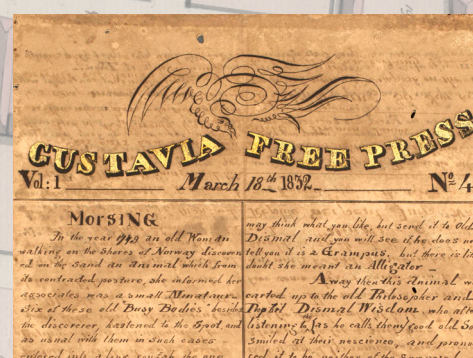 GUSTAVIA FREE PRESS
Vol: 1 March 18th 1832 No 4
MorSING
In the year 1749 an old Woman
walking on the Shores of Norway discover
ed on the sand an animal which from
its contracted posture, she informed her
associates was a small Minataur
Six of these old Busy Bodies besides
the discorcer, hastened to the Spot, and
as usual with them in such cases
entered into a long
may think what you like, but send it to Old
Dismal and you will see if he does n
tell you it is a Grampus, but there is litt
doubt she meant an Alligator —
Away then this animal w
carted up to the old Philosopher and
Pupil Dismal Wisdom, who afte
listening to (as he calls them) good old S
smiled at their nescience, and prono